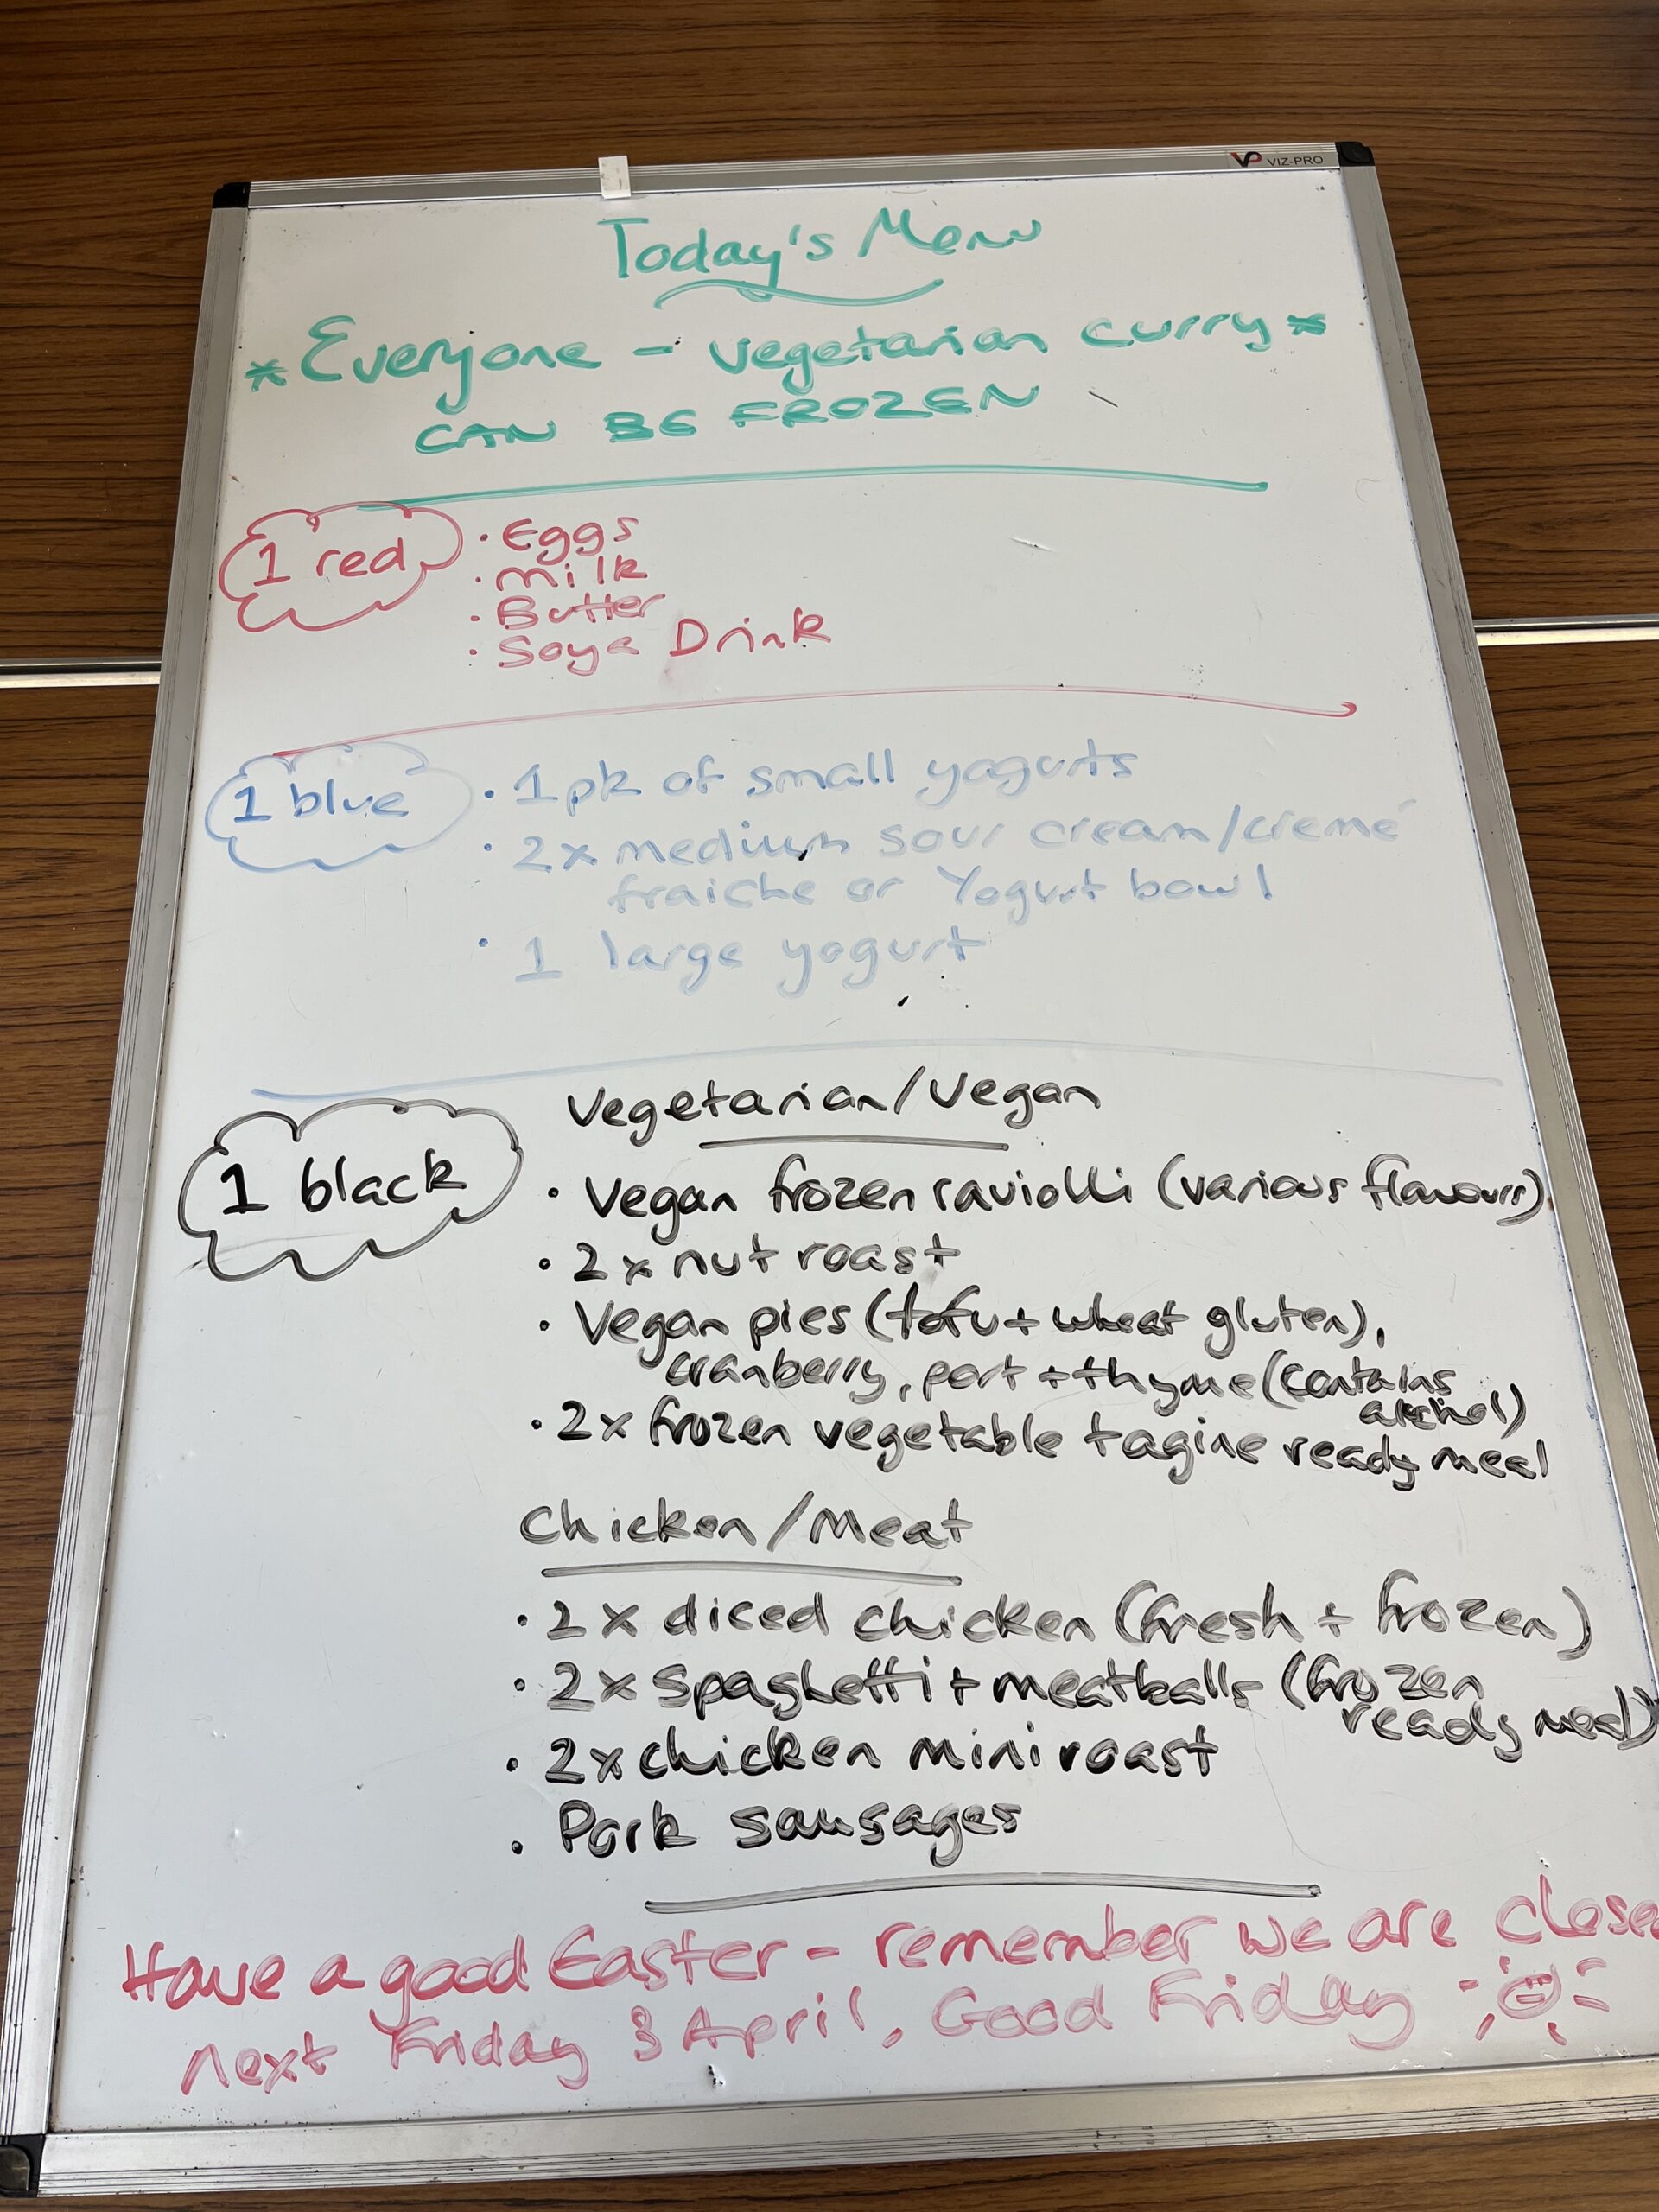 VP VIZ-PRO
Today's Menu
* Everyone - vegetarian curry *
CAN BE FROZEN
1 red
· Eggs
· Milk
· Butter
· Soya Drink
1 blue
· 1pk of small yogurts
· 2x medium sour cream/cremé
fraiche or Yogurt bowl
· 1 large yogurt
1 black
Vegetarian/Vegan
· Vegan frozen raviolli (various flavours)
· 2x nut roast
· Vegan pies (tofu + wheat gluten),
cranberry, port + thyme (contains
alcohol)
· 2x frozen vegetable tagine ready meal
Chicken/Meat
· 2x diced chicken (fresh + frozen)
· 2x spaghetti + meatballs (frozen
ready meal)
· 2x chicken mini roast
· Pork sausages
Have a good Easter - remember we are close
next Friday 3 April, Good Friday